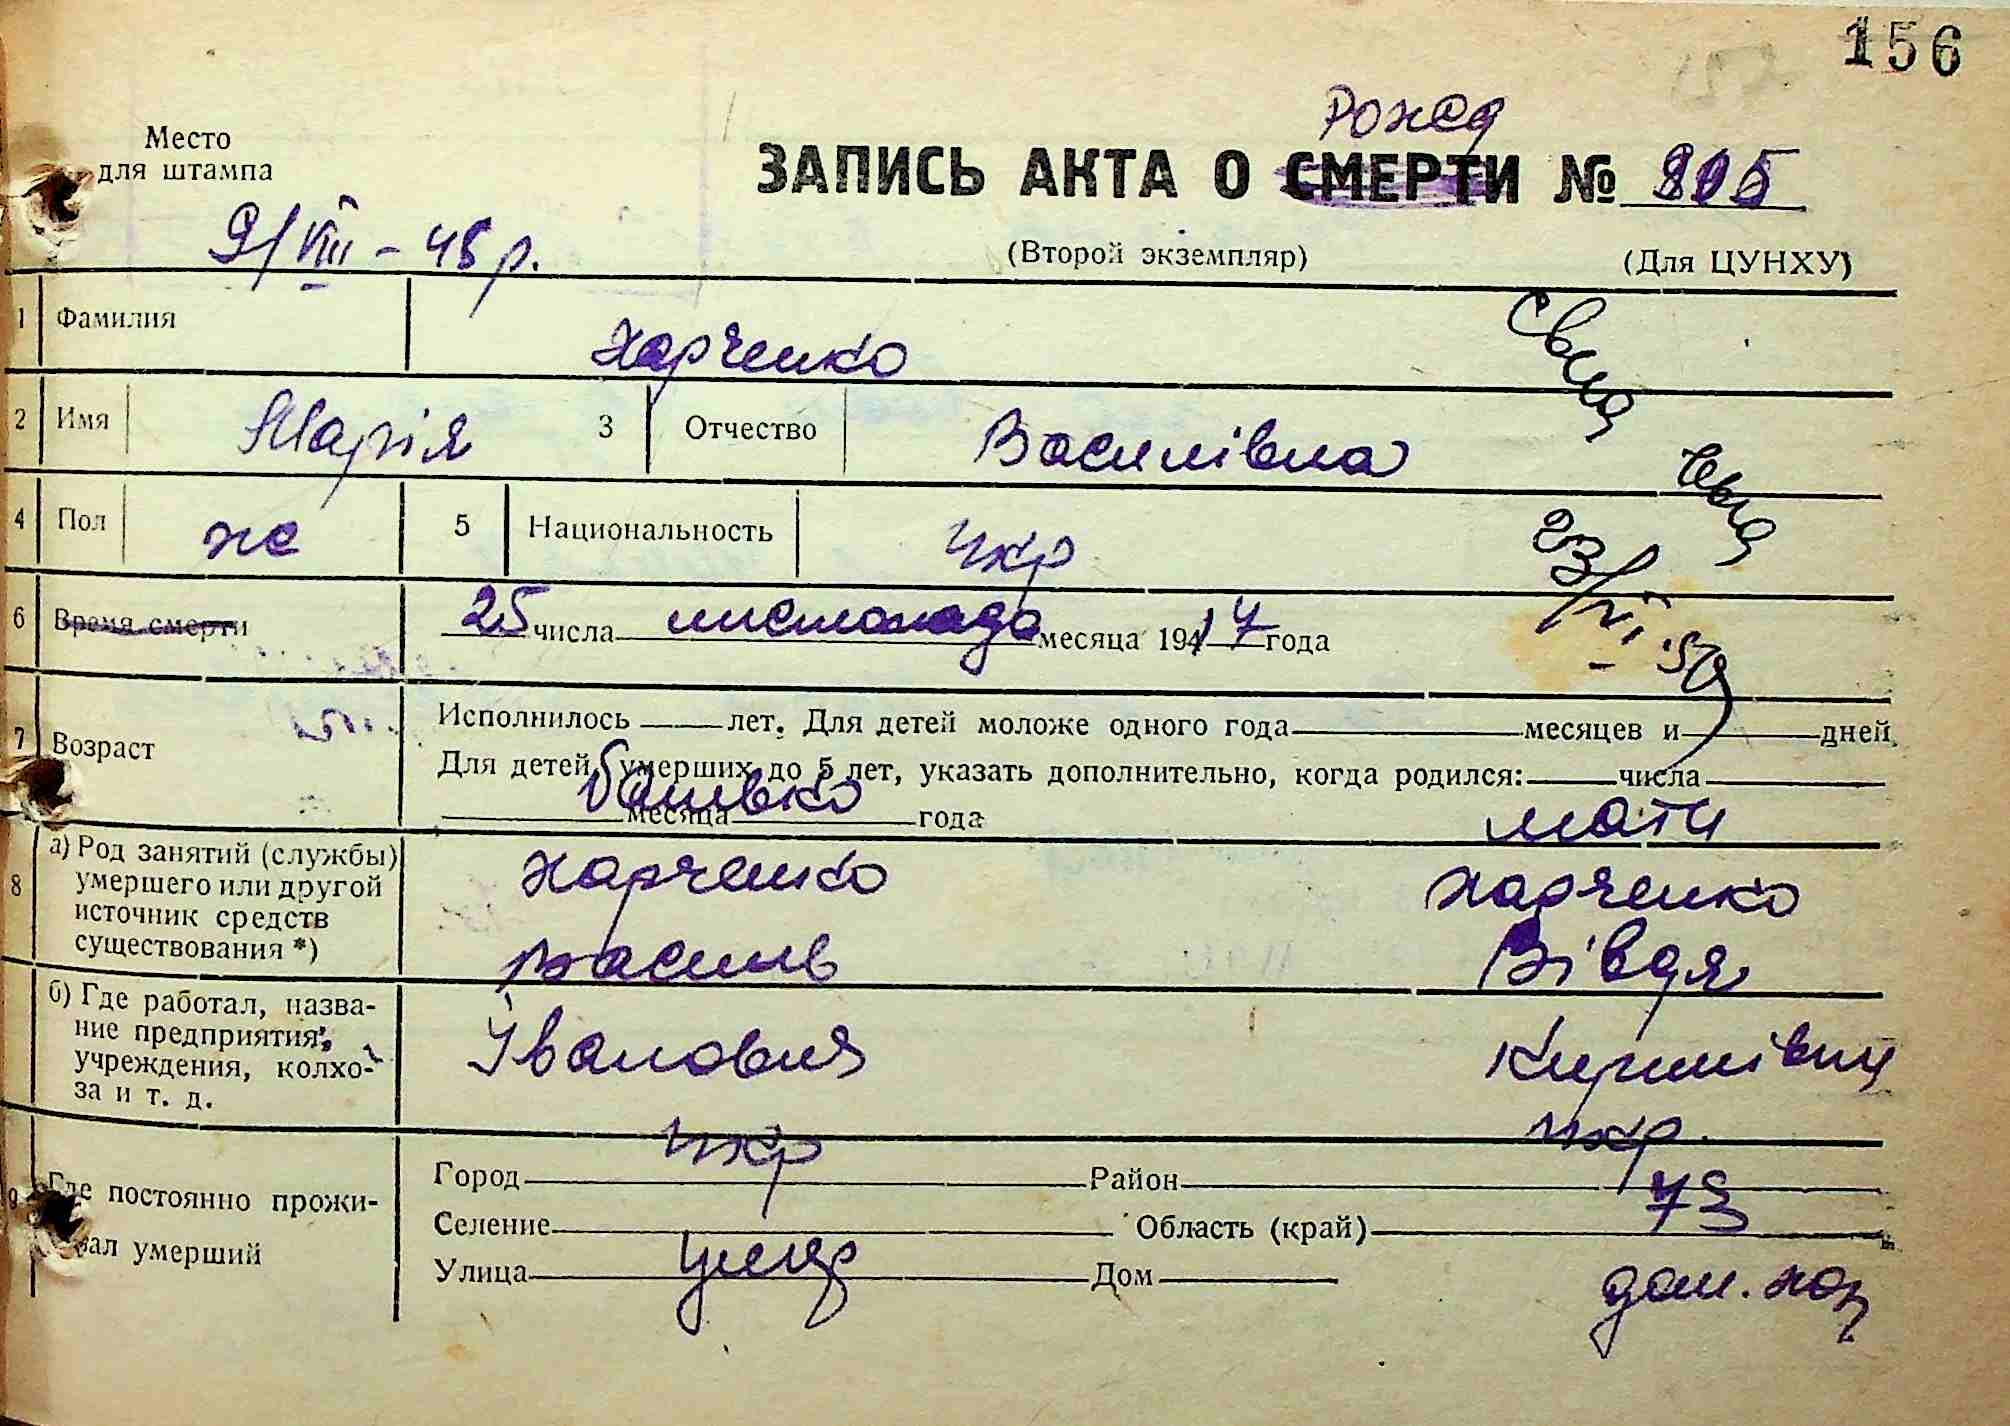 156
Место
для штампа
Рожед
ЗАПИСЬ АКТА О СМЕРТИ № 805
9/VIII – 45 р.
(Второй экземпляр) (Для ЦУНХУ)
1 Фамилия Харченко
2 Имя Марія 3 Отчество Василівна
4 Пол ж 5 Национальность Укр
23/VI 50
6 Время смерти 25 числа листопада месяца 1917 года
7 Возраст
Исполнилось лет. Для детей моложе одного года месяцев и дней.
Для детей, умерших до 5 лет, указать дополнительно, когда родился: числа
месяца года
батько мати
8 а) Род занятий (службы)
умершего или другой
источник средств
существования *)
Харченко Харченко
Василь Вівдя
б) Где работал, назва-
ние предприятия,
учреждения, колхо-
за и т. д.
Іванович Кирилівна
укр укр.
9 Где постоянно прожи-
вал умерший
Город Район
73
Селение Область (край)
Улица Дом
умер дом. хоз